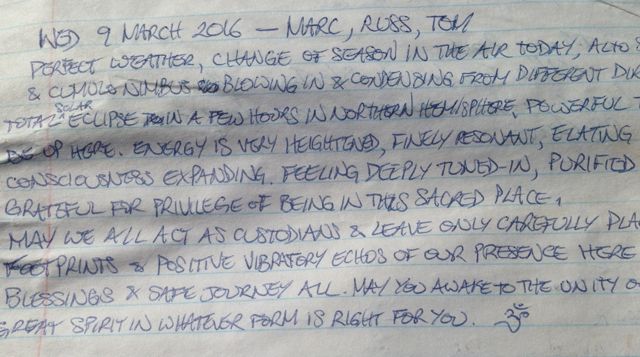 WED 9 MARCH 2016 — MARC, RUSS, TOM
PERFECT WEATHER, CHANGE OF SEASON IN THE AIR TODAY; ALTO
& CUMULO NIMBUS BLOWING IN & CONDENSING FROM DIFFERENT DIR
TOTAL SOLAR ECLIPSE IN A FEW HOURS IN NORTHERN HEMISPHERE, POWERFUL T
BE UP HERE. ENERGY IS VERY HEIGHTENED, FINELY RESONANT, ELATING
CONSCIOUSNESS EXPANDING. FEELING DEEPLY TUNED-IN, PURIFIED
GRATEFUL FOR PRIVILEGE OF BEING IN THIS SACRED PLACE,
MAY WE ALL ACT AS CUSTODIANS & LEAVE ONLY CAREFULLY PLA
FOOTPRINTS & POSITIVE VIBRATORY ECHOS OF OUR PRESENCE HERE
BLESSINGS & SAFE JOURNEY ALL. MAY YOU AWAKE TO THE UNITY O
GREAT SPIRIT IN WHATEVER FORM IS RIGHT FOR YOU. ॐ